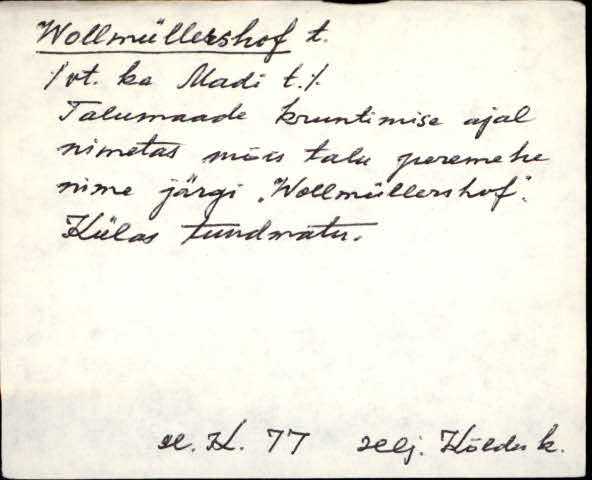 Wollmüllershof t.
/vt. ka Madi t./.
Talumaade kruntimise ajal
nimetas mõis talu peremehe
nime järgi "Wollmüllershof".
Külas tundmatu.
K. 77 Kõldu k.